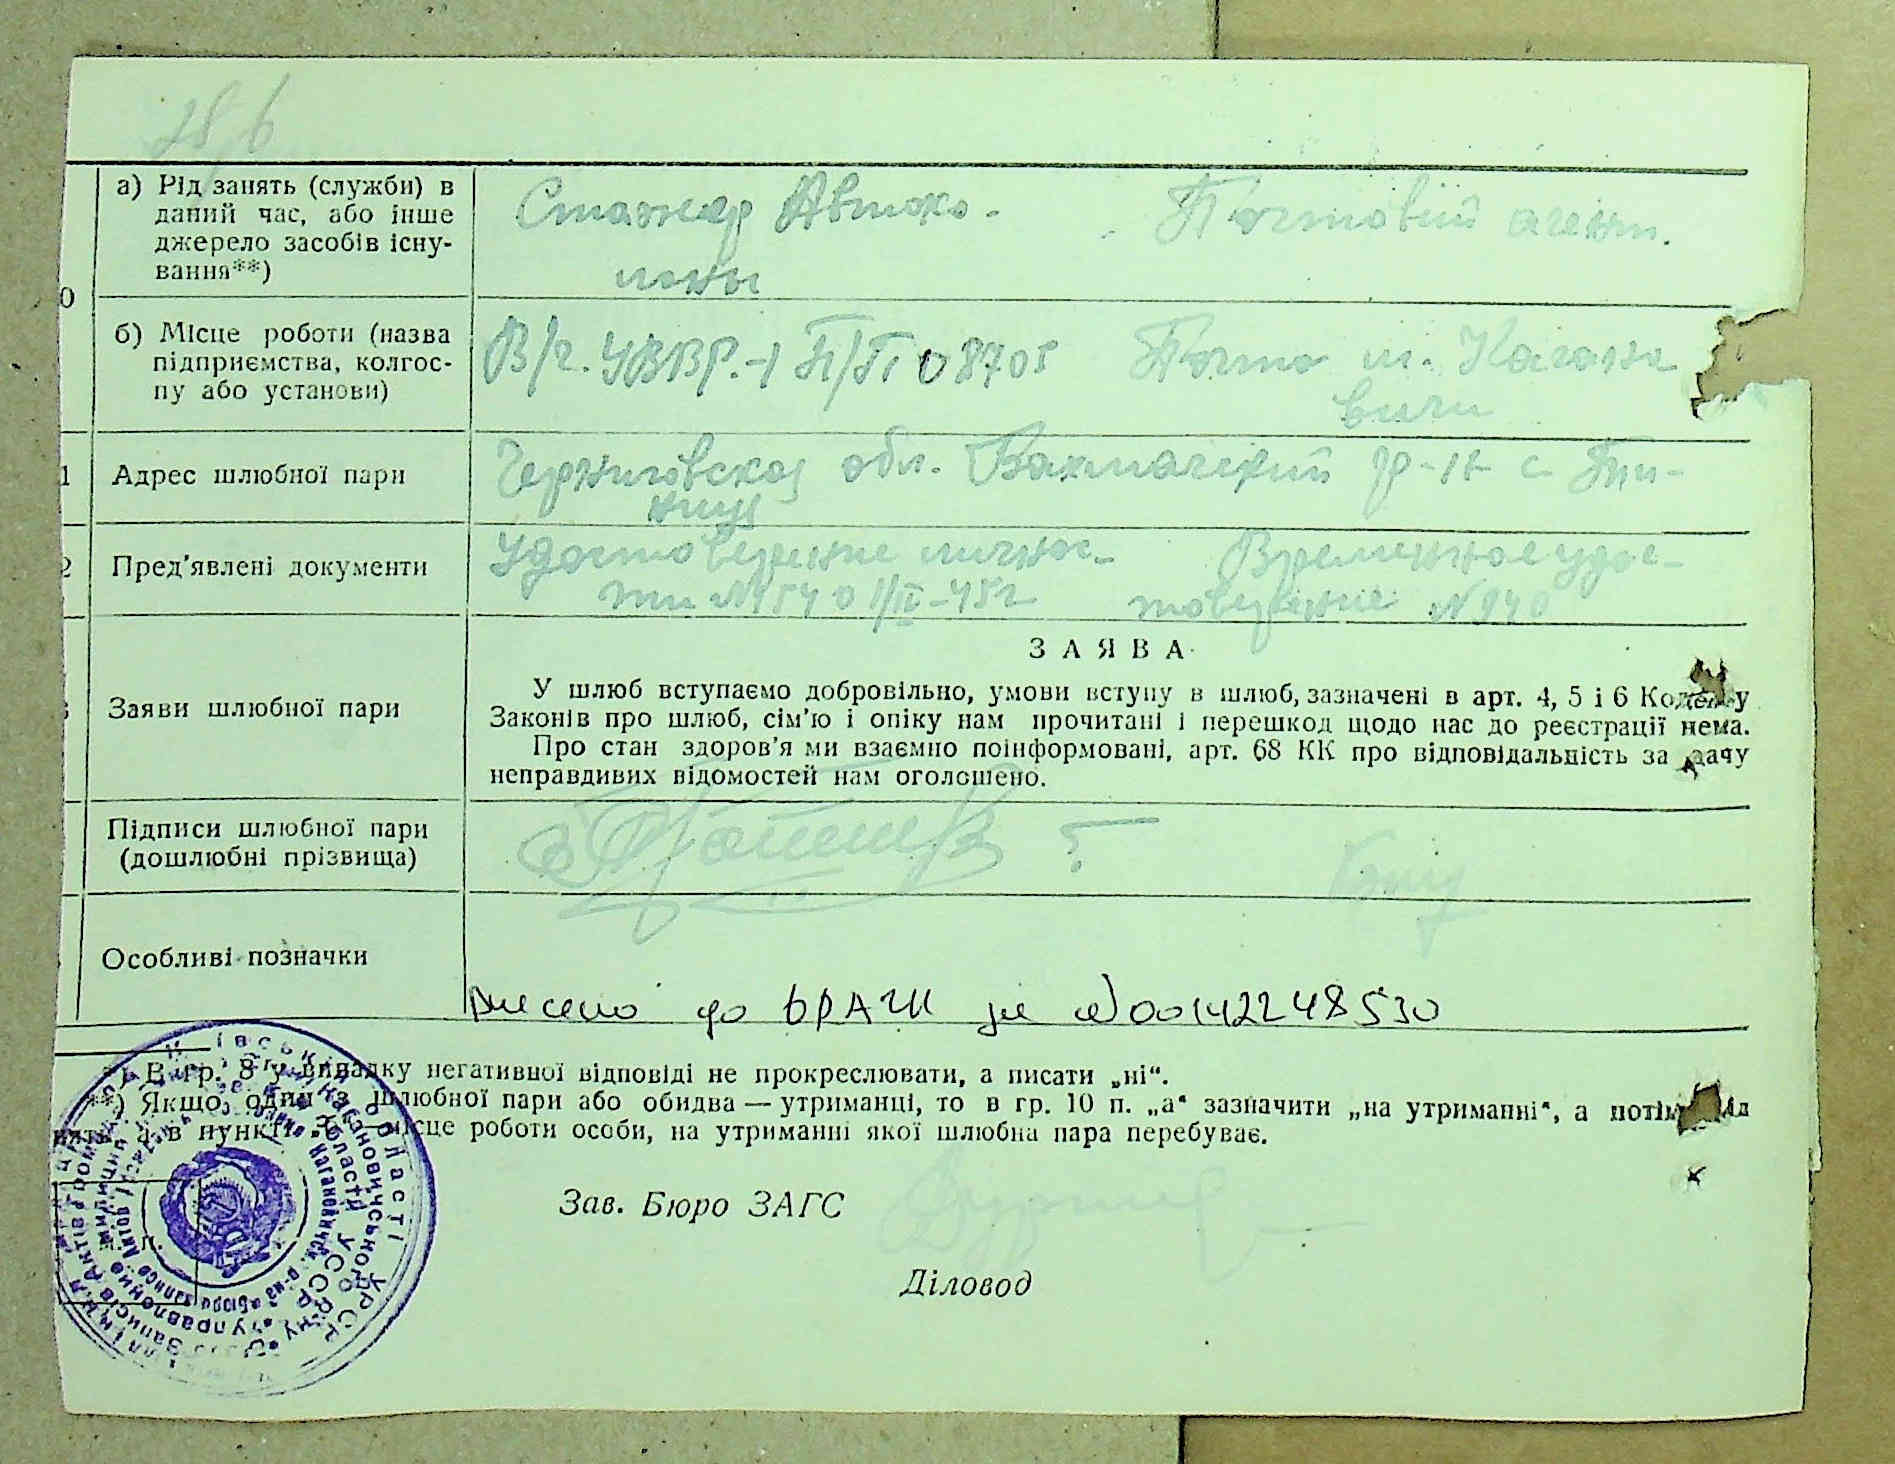 а) Рід занять (служби) в
даний час, або інше
джерело засобів існу-
вання**)
Стажер Автоко-
лоны
Почтовий агент.
0
б) Місце роботи (назва
підприємства, колгос-
пу або установи)
В/ч. УВВР.-1 П/П 08705
Почта м. Кагано
вичи
1 Адрес шлюбної пари
Черниговской обл. Бахмачский р-н с Ти-
ница
2 Пред'явлені документи
Удостоверение личнос-
ти
Временное удос-
товерение №940
Заяви шлюбної пари
ЗАЯВА
У шлюб вступаємо добровільно, умови вступу в шлюб, зазначені в арт. 4, 5 і 6 Кодексу
Законів про шлюб, сім'ю і опіку нам прочитані і перешкод щодо нас до реєстрації нема.
Про стан здоров'я ми взаємно поінформовані, арт. 68 КК про відповідальність за дачу
неправдивих відомостей нам оголошено.
Підписи шлюбної пари
(дошлюбні прізвища)
Особливі позначки
Внесено до ДРАЦС за №00142248530
*) В гр. 8 у випадку негативної відповіді не прокреслювати, а писати „ні“.
**) Якщо один з шлюбної пари або обидва — утриманці, то в гр. 10 п. „а“ зазначити „на утриманні“, а потім рід
занять, а в пункті „б“ — місце роботи особи, на утриманні якої шлюбна пара перебуває.
Зав. Бюро ЗАГС
Діловод